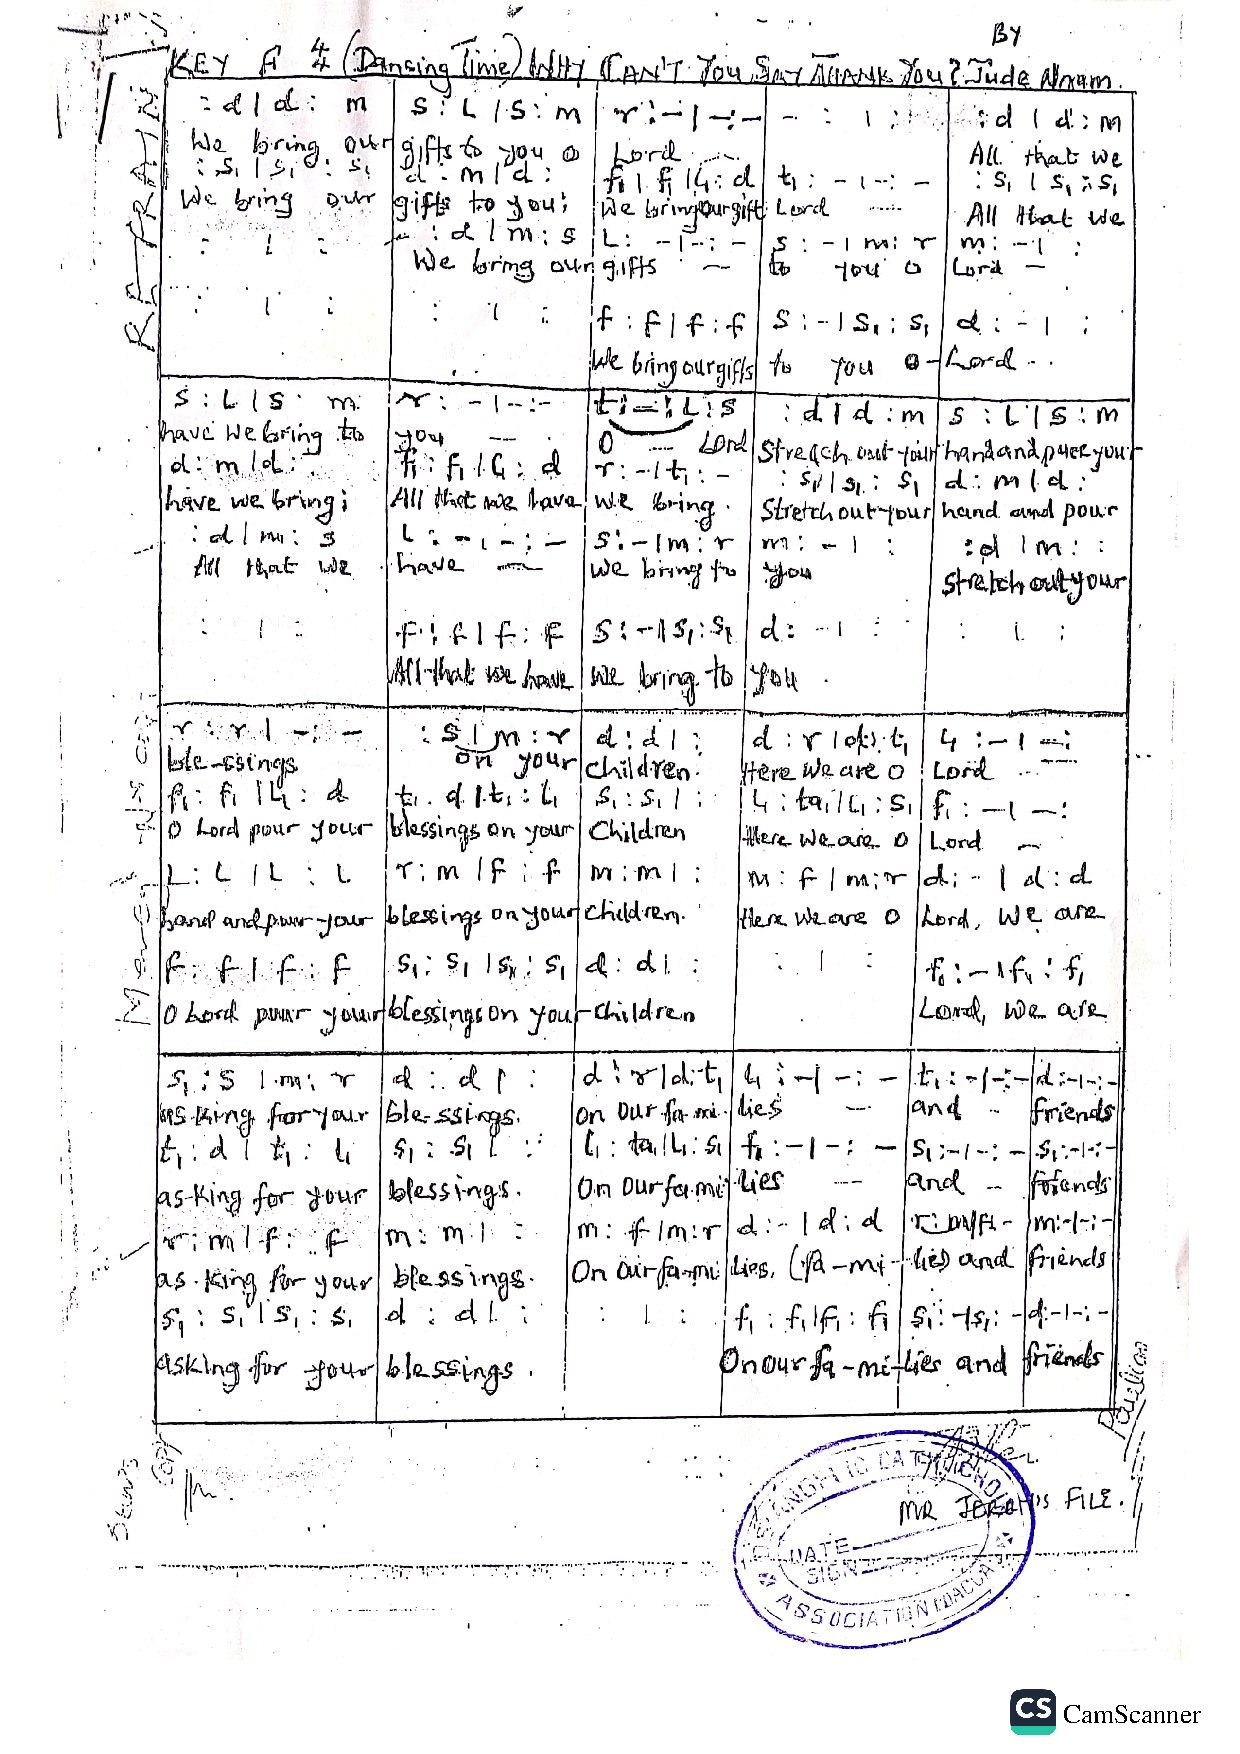 BY
KEY F 4/4 (Dancing Time) WHY CAN'T YOU SAY THANK YOU? Jude Nnam.
REFRAIN
: d | d : m	s : L | s : m	r : - | - : -	- : | :	: d | d : m
We bring our	gifts to you O	Lord	All that we
: s₁ | s₁ : s₁	d : m | d :	f₁ : f₁ | l₁ : d	t₁ : - | - : -	: s₁ | s₁ : s₁
We bring our	gifts to you;	We bring our gift	Lord	All that we
: | :	- : d | m : s	L : - | - : -	s : - | m : r	m : - | :
We bring our	gifts	to you O	Lord
: | :	: | :	f : f | f : f	s : - | s₁ : s₁	d : - | :
We bring our gifts	to you O-	Lord
s : L | s : m	r : - | - : -	t : - : L : s	: d | d : m	s : L | s : m
have we bring to	you	O Lord	Stretch out your	hand and pour your
d : m | d :	f₁ : f₁ | l₁ : d	r : - | t₁ : -	: s₁ | s₁ : s₁	d : m | d :
have we bring;	All that we have	we bring.	Stretch out your	hand and pour
: d | m : s	L : - | - : -	s : - | m : r	m : - | :	: d | m : :
All that we	have	we bring to	you	Stretch out your
: | :	f : f | f : f	s : - | s₁ : s₁	d : - | :	: | :
All that we have	we bring to	you.
r : r | - : -	: s | m : r	d : d | :	d : r | d : t₁	l₁ : - | - :
ble-ssings	on your	children.	Here we are O	Lord
f₁ : f₁ | l₁ : d	t₁ . d | t₁ : l₁	s₁ : s₁ | :	l₁ : ta₁ | l₁ : s₁	f₁ : - | - :
O Lord pour your	blessings on your	Children	Here we are O	Lord
L : L | L : L	r : m | f : f	m : m | :	m : f | m : r	d : - | d : d
hand and pour your	blessings on your	children.	Here we are O	Lord, we are
f : f | f : f	s₁ : s₁ | s₁ : s₁	d : d | :	: | :	f₁ : - | f₁ : f₁
O Lord pour your	blessings on your	children	Lord, we are
s₁ : s | m : r	d : d | :	d : r | d : t₁	l₁ : - | - : -	t₁ : - | - : -	d : - | - : -
as-king for your	ble-ssings.	On our fa-mi-	lies	and	friends
t₁ : d | t₁ : l₁	s₁ : s₁ | :	l₁ : ta₁ | l₁ : s₁	f₁ : - | - : -	s₁ : - | - : -	s₁ : - | - : -
as-king for your	blessings.	On our fa-mi	lies	and	friends
r : m | f : f	m : m | :	m : f | m : r	d : - | d : d	r : m | f : -	m : - | - : -
as-king for your	blessings.	On our fa-mi	lies, (fa-mi-	lies) and	friends
s₁ : s₁ | s₁ : s₁	d : d | :	: | :	f₁ : f₁ | f₁ : f₁	s₁ : - | s₁ : -	d : - | - : -
asking for your	blessings.	On our fa-mi-	lies and	friends
MR JEREH'S FILE.
DATE
SIGN
ASSOCIATION
CS CamScanner